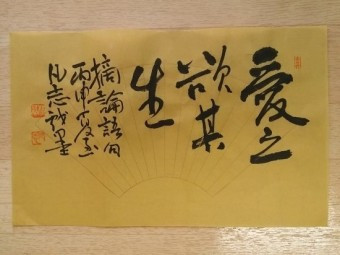 愛之
欲其
生
摘論語句
丙申夏至
凡志誠墨